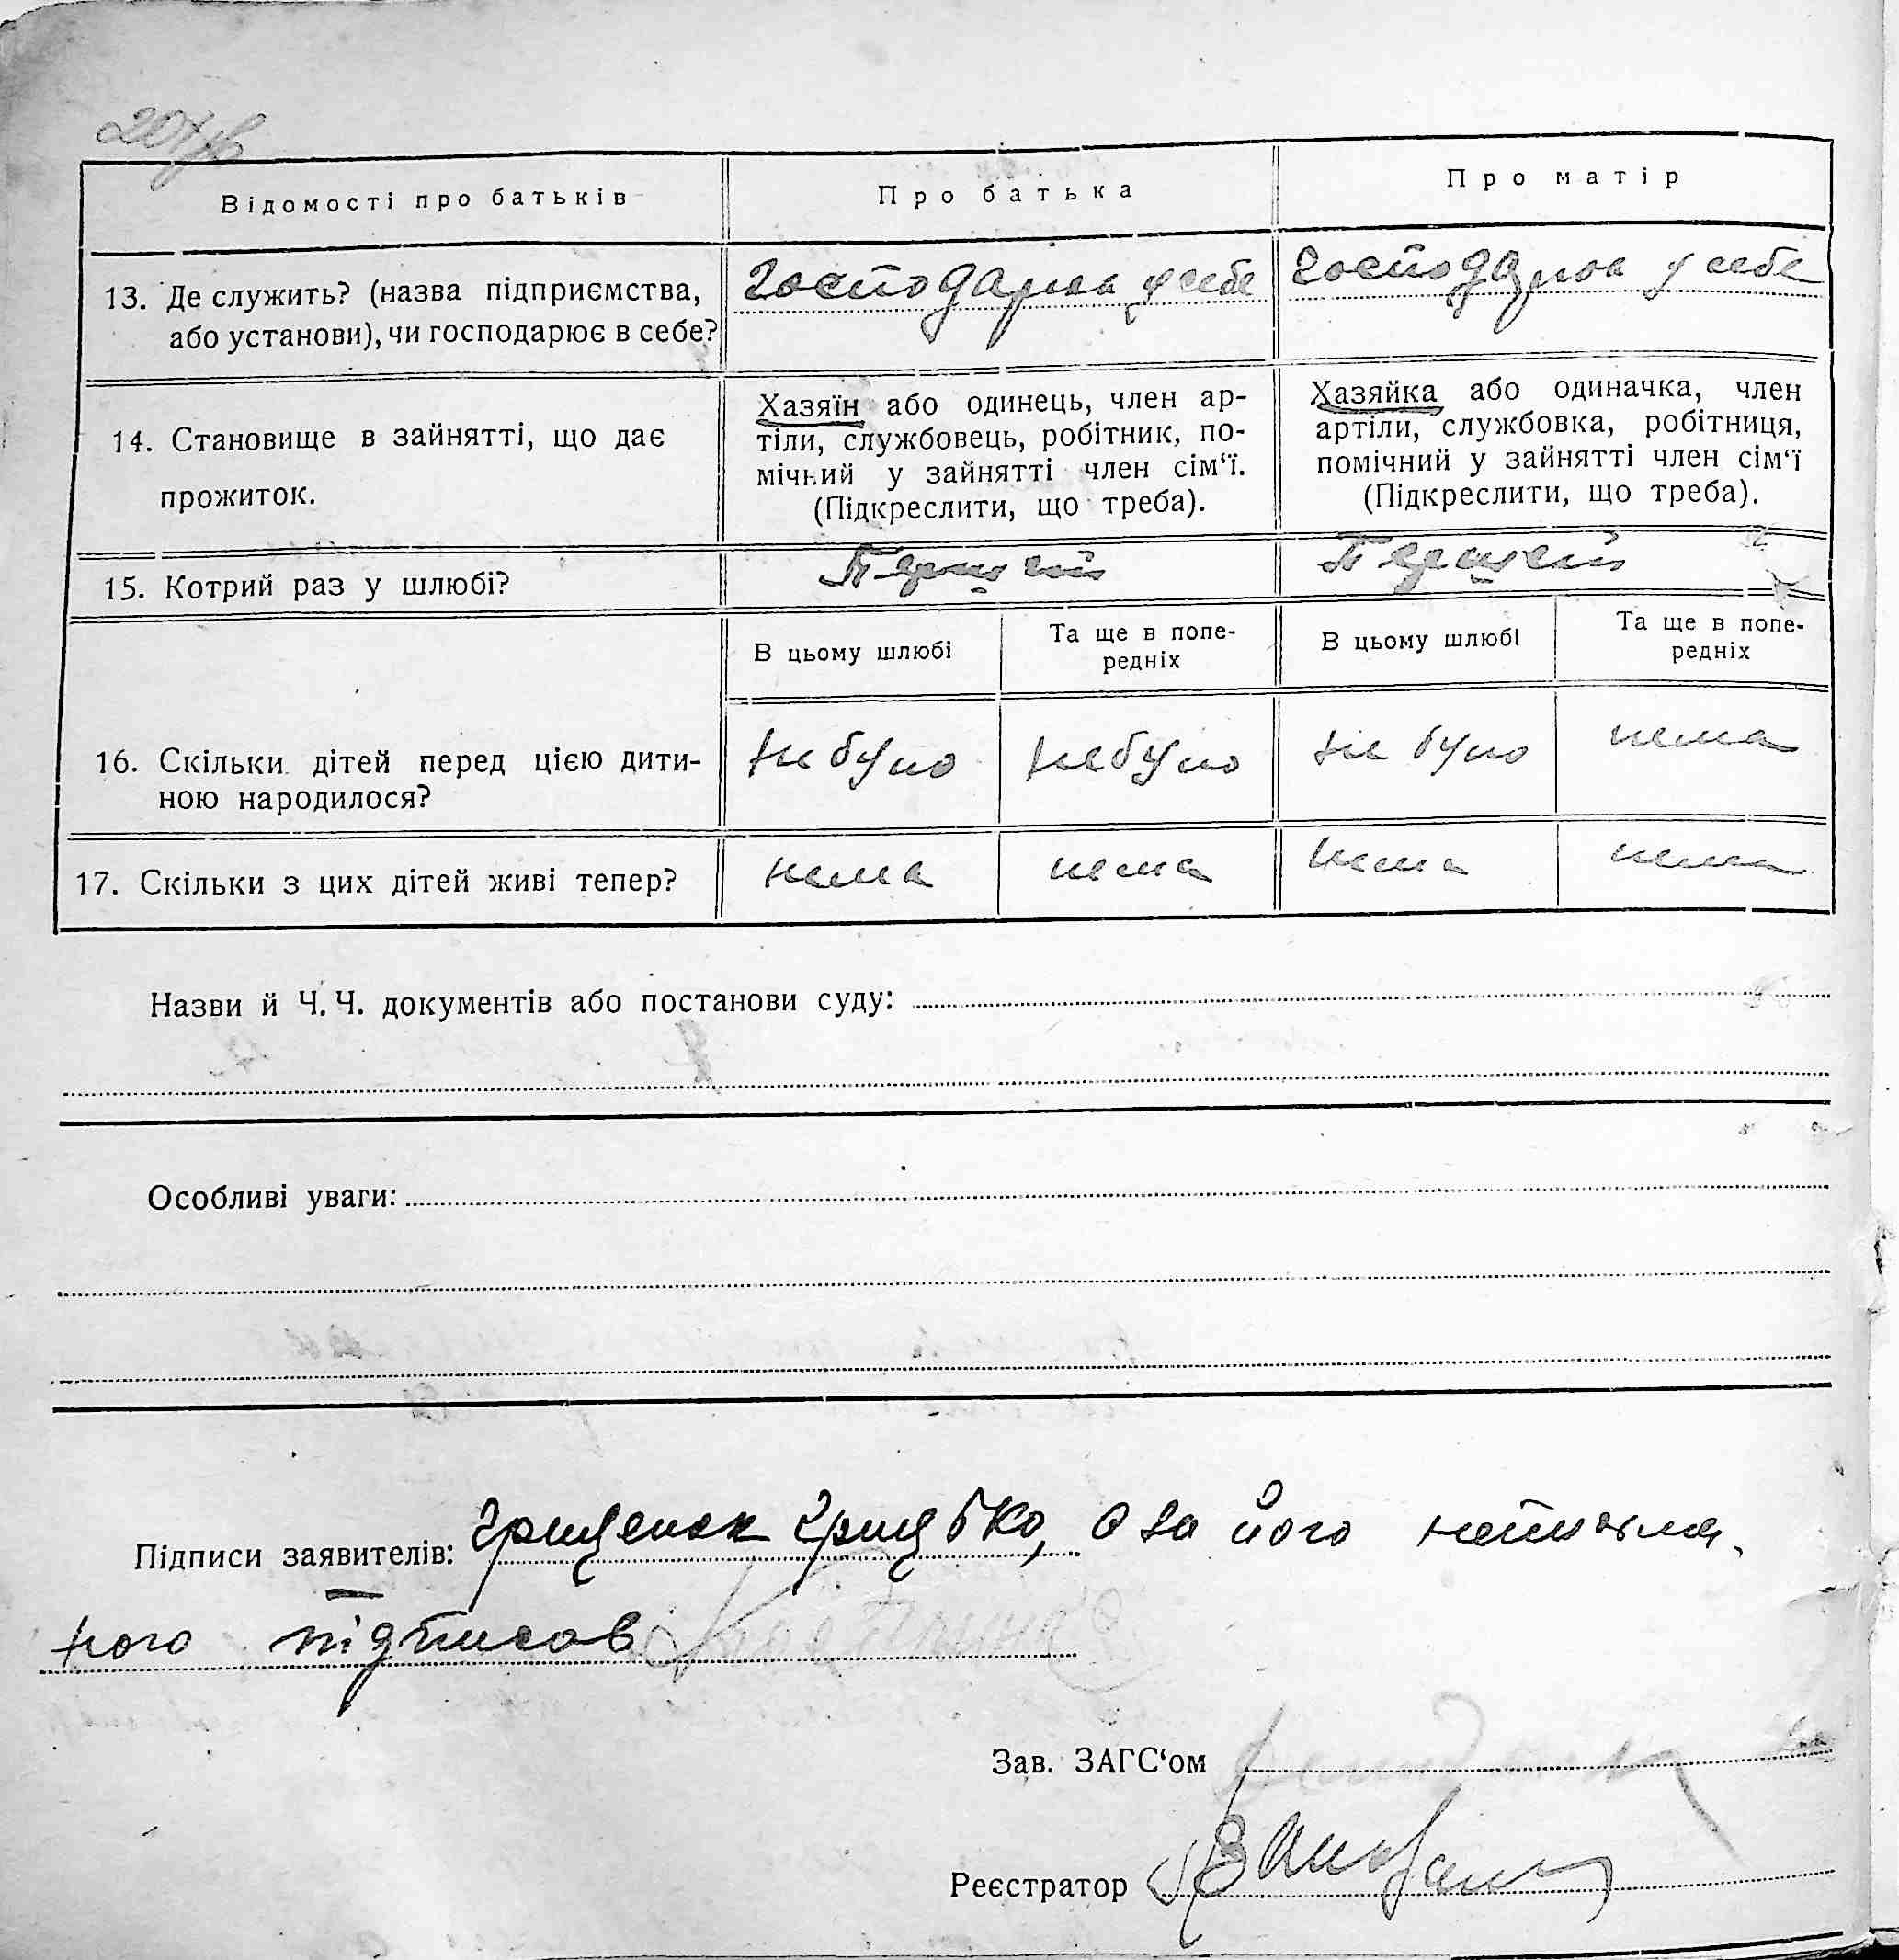 Відомості про батьків
Про батька
Про матір
13. Де служить? (назва підприємства,
або установи), чи господарює в себе?
господарка у себе
господарка у себе
14. Становище в зайнятті, що дає
прожиток.
Хазяїн або одинець, член ар-
тіли, службовець, робітник, по-
мічний у зайнятті член сім‘ї.
(Підкреслити, що треба).
Хазяйка або одиначка, член
артіли, службовка, робітниця,
помічний у зайнятті член сім‘ї
(Підкреслити, що треба).
15. Котрий раз у шлюбі?
Першей
Першей
В цьому шлюбі
Та ще в попе-
редніх
В цьому шлюбі
Та ще в попе-
редніх
16. Скільки дітей перед цією дити-
ною народилося?
не було
не було
не було
нема
17. Скільки з цих дітей живі тепер?
нема
нема
нема
нема
Назви й Ч. Ч. документів або постанови суду:
Особливі уваги:
Підписи заявителів: Грищенок Грицько, а за його неписьмен
ного підписав
Зав. ЗАГС‘ом
Реєстратор